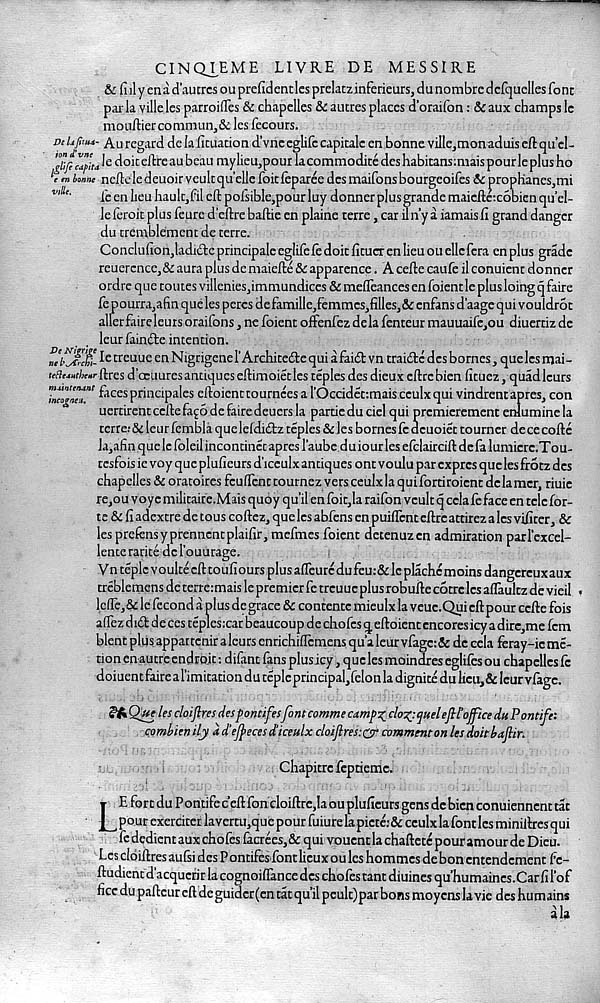 CINQIEME LIVRE DE MESSIRE
& ſi il y en à d'autres ou preſident les prelatz inferieurs, du nombre deſquelles ſont
par la ville les parroiſſes & chapelles & autres places d'oraiſon : & aux champs le
mouſtier commun, & les ſecours.
De la ſitua-
tion d'vne
egliſe capita
le en bonne
ville.
Au regard de la ſituation d'vne egliſe capitale en bonne ville, mon aduis eſt qu'el-
le doit eſtre au beau mylieu, pour la commodité des habitans: mais pour le plus ho
neſte le deuoir veult qu'elle ſoit ſeparée des maiſons bourgeoiſes & prophanes, mi
ſe en lieu hault, ſ'il eſt poſsible, pour luy donner plus grande maieſté: cōbien qu'el-
le ſeroit plus ſeure d'eſtre baſtie en plaine terre, car il n'y à iamais ſi grand danger
du tremblement de terre.
Concluſion, ladicte principale egliſe ſe doit ſituer en lieu ou elle ſera en plus grāde
reuerence, & aura plus de maieſté & apparence. A ceſte cauſe il conuient donner
ordre que toutes villenies, immundices & meſſeances en ſoient le plus loing q̄ faire
ſe pourra, afin que les peres de famille, femmes, filles, & enfans d'aage qui vouldrōt
aller faire leurs oraiſons, ne ſoient offenſez de la ſenteur mauuaiſe, ou diuertiz de
leur ſaincte intention.
De Nigrige
ne l'Archi-
tecte autheur
maintenant
incogneu.
Ie treuue en Nigrigene l'Architecte qui à faict vn traicté des bornes, que les mai-
ſtres d'œuures antiques eſtimoiēt les tēples des dieux eſtre bien ſituez, quād leurs
faces principales eſtoient tournées a l'Occidēt: mais ceulx qui vindrent apres, con
uertirent ceſte façō de faire deuers la partie du ciel qui premierement enlumine la
terre: & leur ſembla que leſdictz tēples & les bornes ſe deuoiēt tourner de ce coſté
la, afin que le ſoleil incontinēt apres l'aube du iour les eſclairciſt de ſa lumiere. Tou-
tesfois ie voy que pluſieurs d'iceulx antiques ont voulu par expres que les frōtz des
chapelles & oratoires feuſſent tournez vers ceulx la qui ſortiroient de la mer, riuie
re, ou voye militaire. Mais quoy qu'il en ſoit, la raiſon veult q̄ cela ſe face en tele ſor-
te & ſi adextre de tous coſtez, que les abſens en puiſſent eſtre attirez a les viſiter, &
les preſens y prennent plaiſir, meſmes ſoient detenuz en admiration par l'excel-
lente rarité de l'ouurage.
Vn tēple voulté eſt touſiours plus aſſeuré du feu: & le plāché moins dangereux aux
trēblemens de terre: mais le premier ſe treuue plus robuſte cōtre les aſſaultz de vieil
leſſe, & le ſecond à plus de grace & contente mieulx la veue. Qui eſt pour ceſte fois
aſſez dict de ces tēples: car beaucoup de choſes q̄ eſtoient encores icy a dire, me ſem
blent plus appartenir a leurs enrichiſſemens qu'a leur vſage: & de cela feray-ie mē-
tion en autre endroit: diſant ſans plus icy, que les moindres egliſes ou chapelles ſe
doiuent faire a l'imitation du tēple principal, ſelon la dignité du lieu, & leur vſage.
Que les cloiſtres des pontifes ſont comme campz cloz: quel eſt l'office du Pontife:
combien il y à d'eſpeces d'iceulx cloiſtres: & comment on les doit baſtir.
Chapitre ſeptieme.
LE fort du Pontife c'eſt ſon cloiſtre, la ou pluſieurs gens de bien conuiennent tāt
pour exerciter la vertu, que pour ſuiure la pieté: & ceulx la ſont les miniſtres qui
ſe dedient aux choſes ſacrées, & qui vouent la chaſteté pour amour de Dieu.
Les cloiſtres auſsi des Pontifes ſont lieux ou les hommes de bon entendement ſe-
ſtudient d'acquerir la cognoiſſance des choſes tant diuines qu'humaines. Car ſi l'of
fice du paſteur eſt de guider (en tāt qu'il peult) par bons moyens la vie des humains
à la